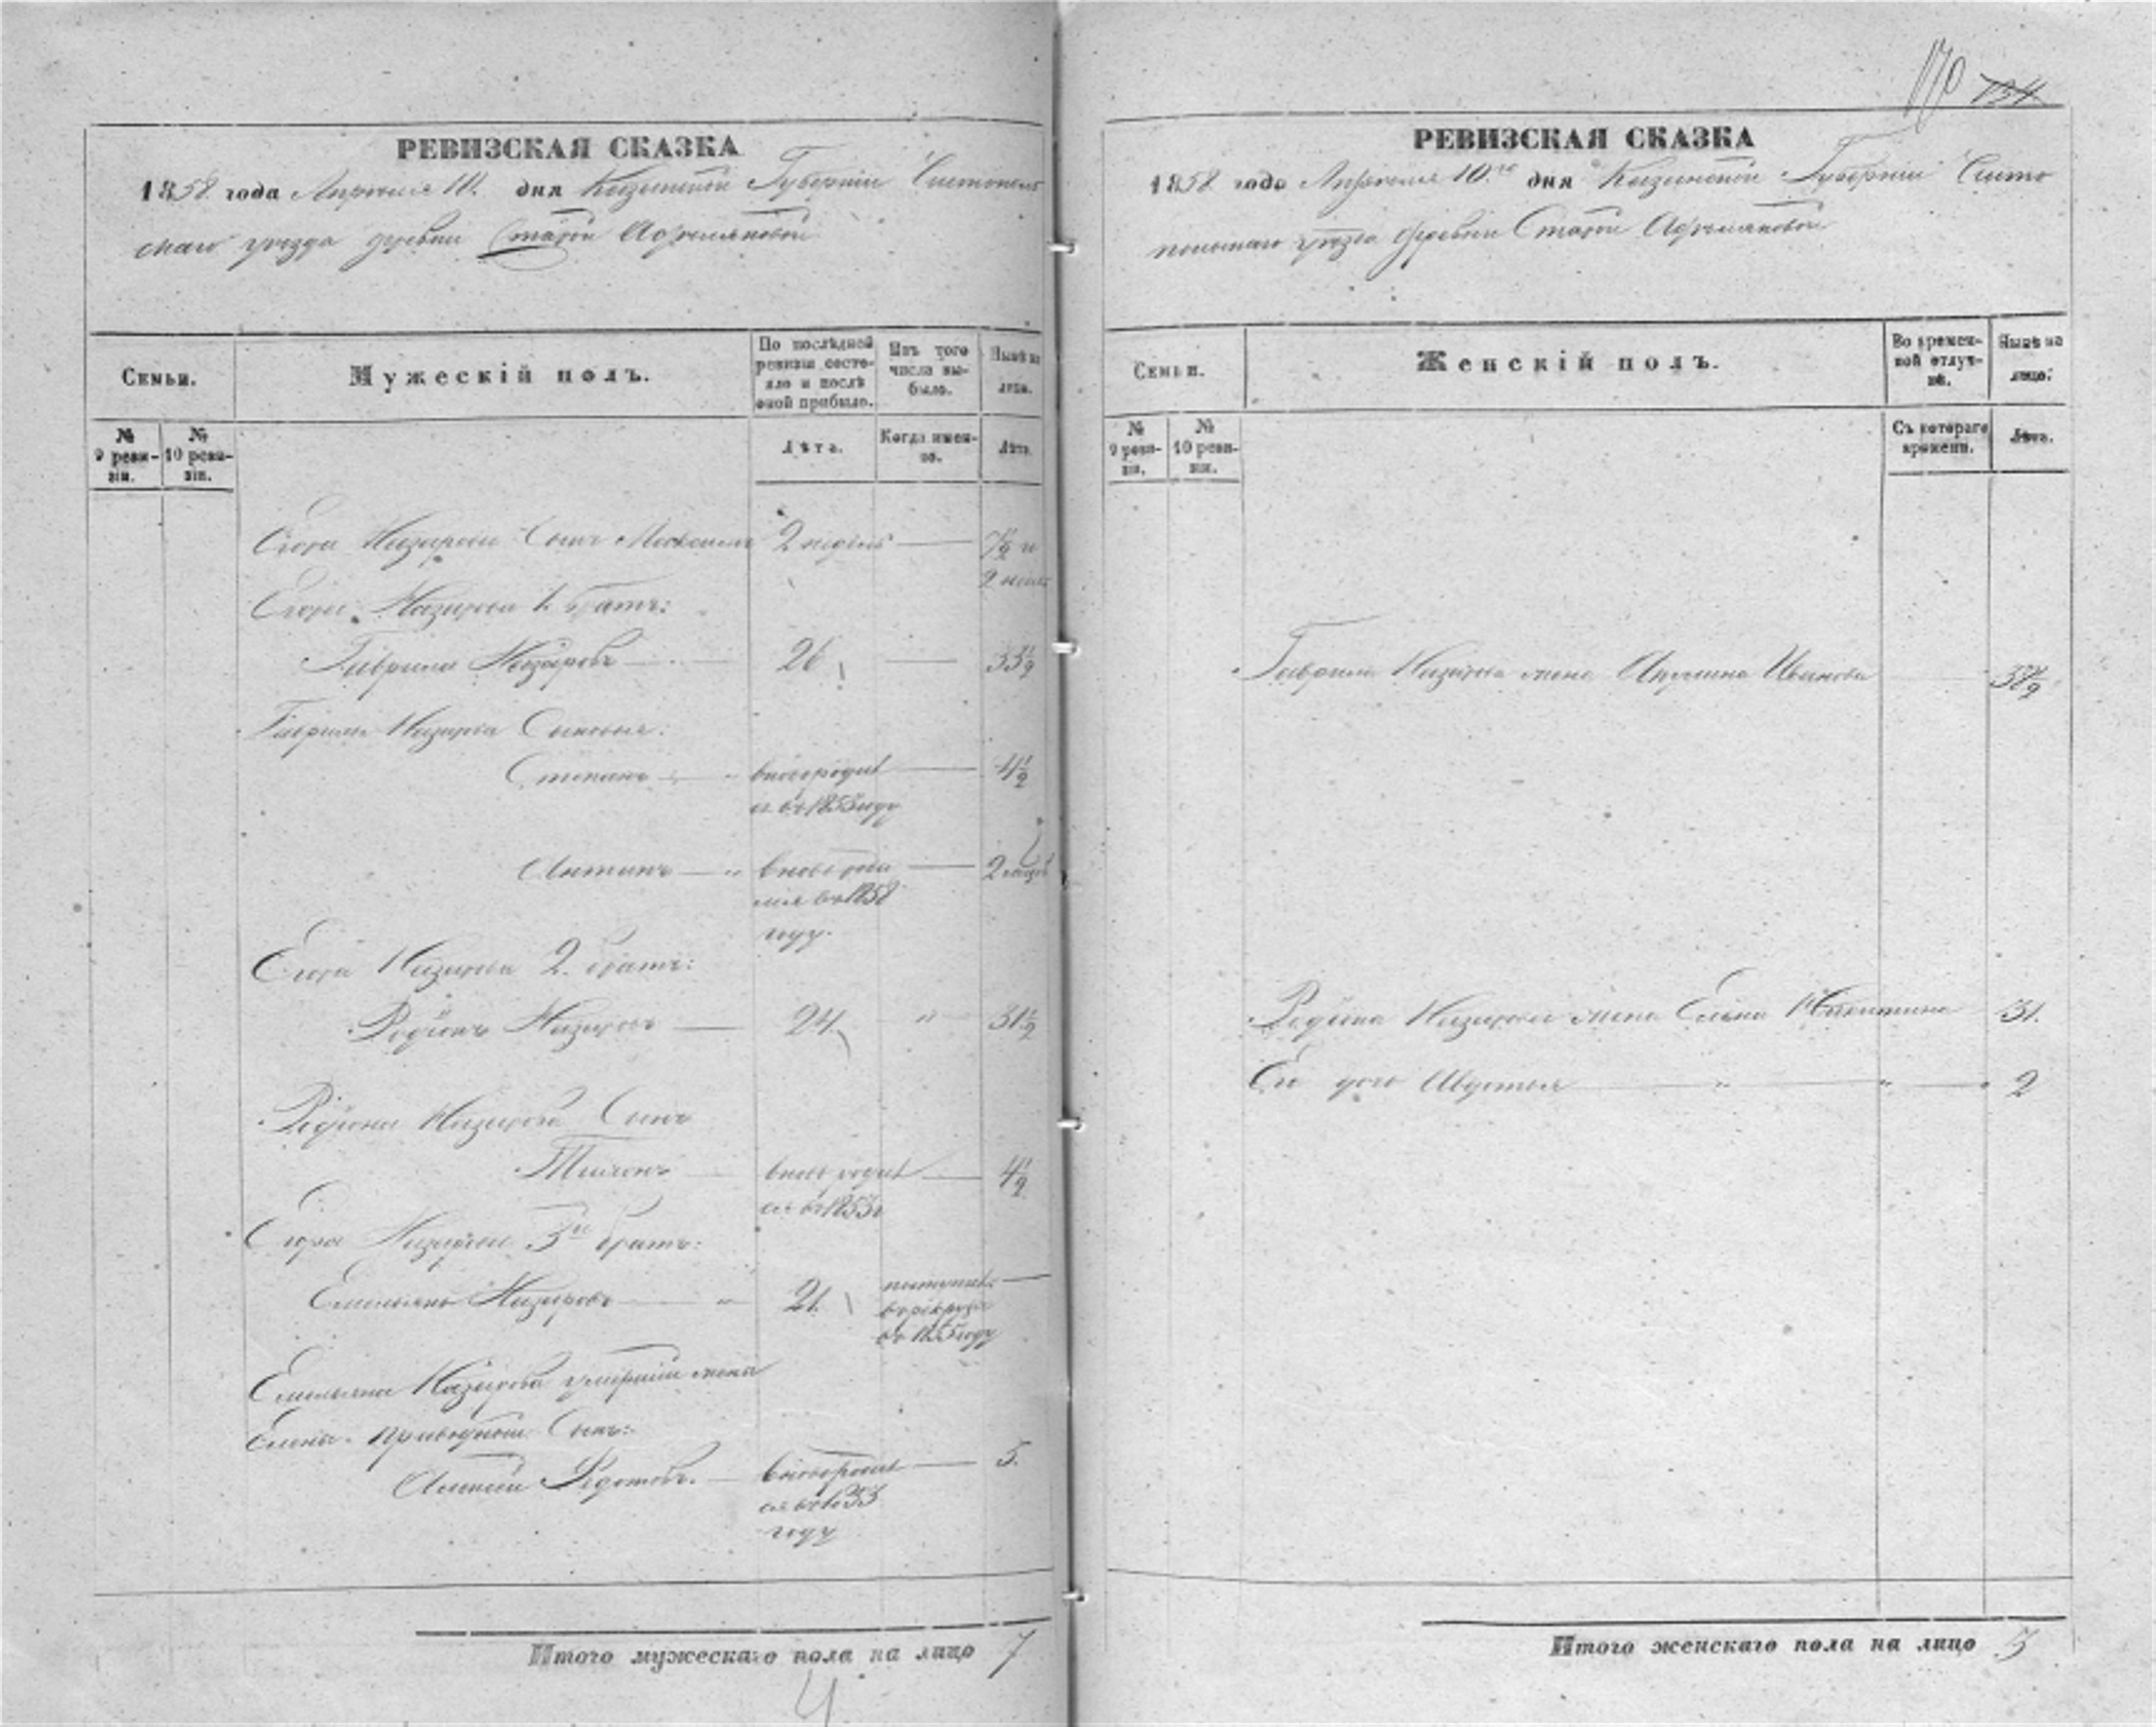 РЕВИЗСКАЯ СКАЗКА
1858 года Апреля 10. дня Казанской Губерніи Чистополь
скаго уезда деревни Старой
Семьи.
Мужескій полъ.
По послѣдней ревизіи состояло и послѣ оной прибыло.
Изъ того числа выбыло.
Нынѣ на лицо.
№ 9 ревизіи.
№ 10 ревизіи.
Лѣта.
Когда именно.
Лѣта.
Егора Назарова Сынъ 2 недель — 7½ и
2 недел
Егора Назарова 1. братъ:
Гаврила Назаровъ — 26 — 33½
Гаврилы Назарова Сыновья:
Степанъ — " вновь родил — 4½
ся въ 1853 году
Антипъ — " вновь роди — 2
лся въ 1858
году.
Егора Назарова 2. братъ:
Родіонъ Назаровъ — 24. " 31½
Родіона Назарова Сынъ
Тихонъ вновь родил — 4½
ся въ 1853
Егора Назарова 3й братъ:
Емельянъ Назаровъ — " 21. поступил —
в рекруты
въ 1855 году
Емельяна Назарова умершей жены
Елены приводной Сынъ:
Алексей Федотовъ. — вновь родил — 5.
ся въ 1853
году
Итого мужескаго пола на лицо 7
170 734
РЕВИЗСКАЯ СКАЗКА
1858 года Апреля 10.го дня Казанской Губерніи Чисто
польскаго уезда деревни Старой
Семьи.
Женскій полъ.
Во временной отлучкѣ.
Нынѣ на лицо.
№ 9 ревизіи.
№ 10 ревизіи.
Съ котораго времени.
Лѣта.
Гаврилы Назарова жена Иванова
Родіона Назарова жена Елена Никитина 31.
Ея дочь Авдотья " " 2
Итого женскаго пола на лицо 3